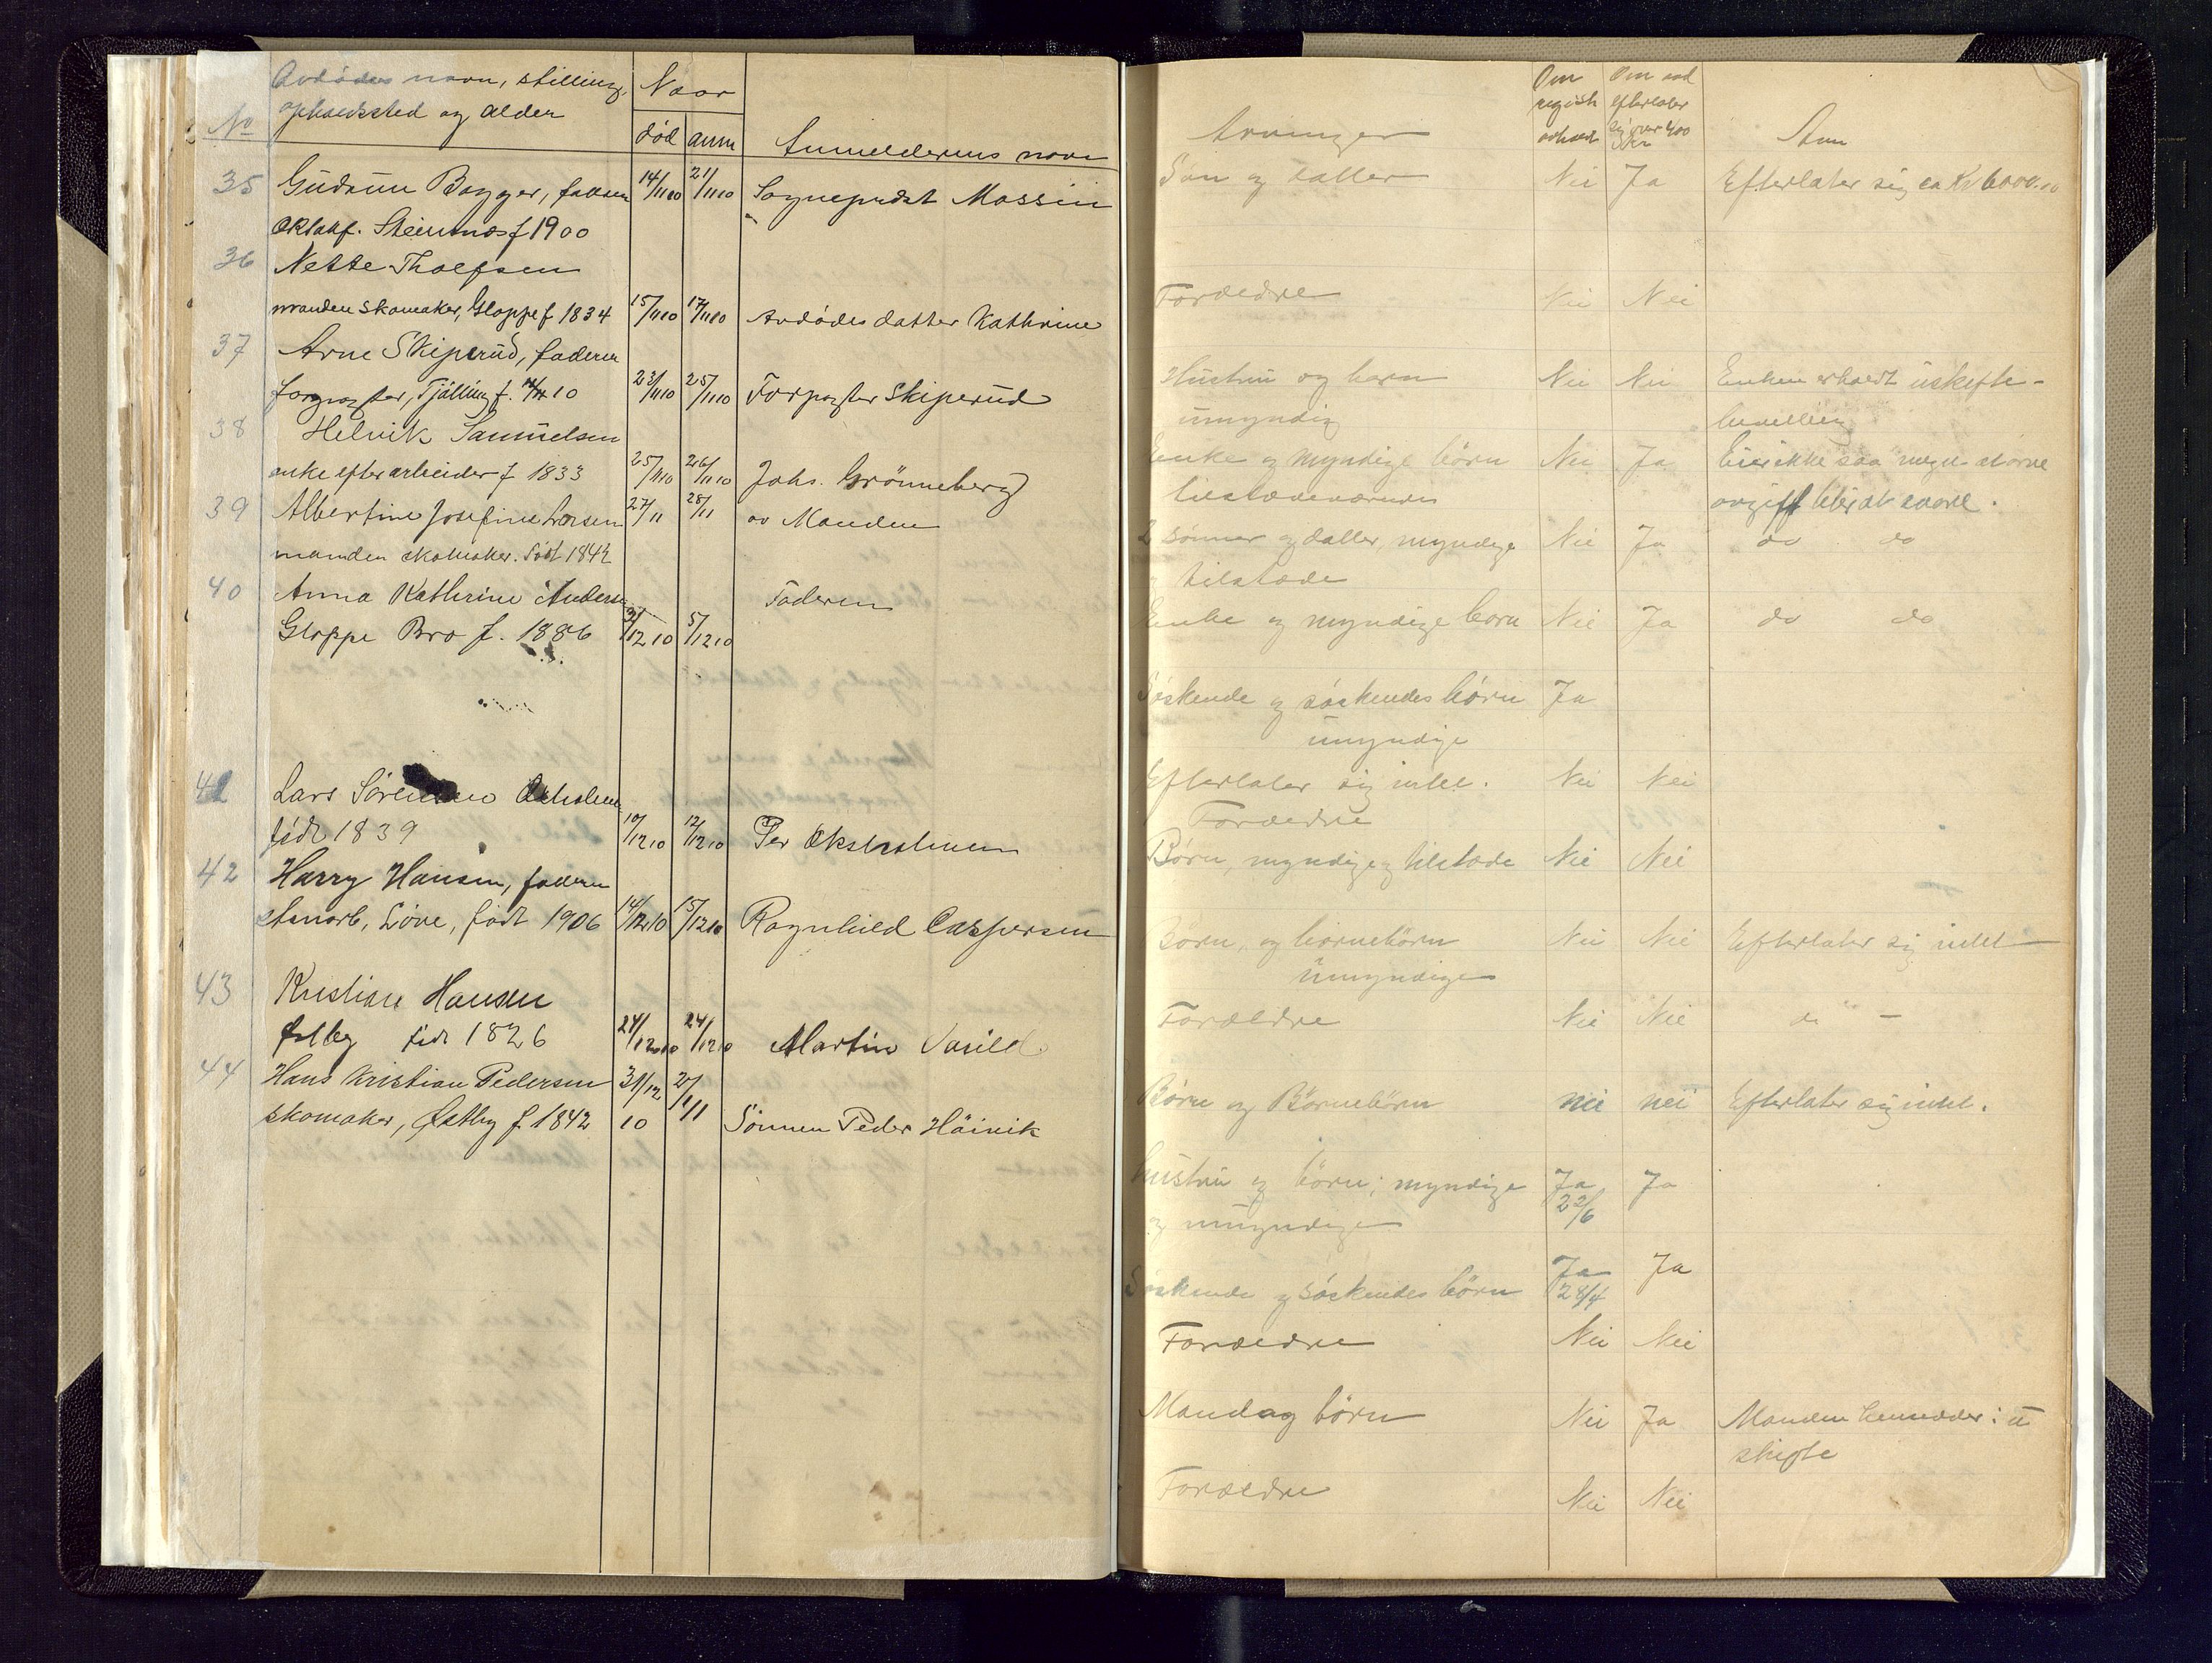 Avdødes navn, stilling,
opholdssted og alder
Naar
No
død anm
Anmelderens navn
35 Gudrun Bagger, faderen 14/11 10 21/11 10 Sogneprest Massin
Steinnæs f 1900
36 Nette Tholfsen
manden skomaker, Gloppe f 1834 15/11 10 17/11 10 Avdødes datter Kathrine
37 Arne Skiperud, faderen
forpagter, Tjølling f. 10 23/11 10 25/11 10 Forpagter Skiperud
38 Helvik Samuelsen
enke efter arbeider f 1833 25/11 10 26/11 10 Johs. Grønneberg
39 Albertine Josefine Larsen 27/11 28/11 av Manden
manden skomaker. Født 1842
40 Anna Kathrine Anders Faderen
Gloppe Bro f. 1886 3/12 10 5/12 10
42 Lars Sørensen
født 1839 10/12 10 12/12 10 Per Oksholmen
42 Harry Hansen, faderen
stenarb, Løve, født 1906 14/12 10 15/12 10 Ragnhild Caspersen
43 Kristian Hansen
Østby født 1826 21/12 10 24/12 10 Martin Vasild
44 Hans Kristian Pedersen 31/12 2/1
skomaker, Østby f. 1842 10 11 Sønnen Peder Høivik
Om Om avd
regist efterlater
Arvinger avholdt sig over 400 Kr Anm
Søn og datter Nei Ja Efterlater sig ca Kr 6000.00
Forældre Nei Nei
Hustru og barn Nei Nei Enken erholdt uskifte-
umyndig bevilling
Enke og myndige børn Nei Ja Eier ikke saa meget at arve
tilstedeværende avgift blir at svare.
2 sønner og datter, myndige Nei Ja do do
tilstede
Enke og myndige børn Nei Ja do do
Søskende og søskendes børn Ja
umyndige
Efterlater sig intet. Nei Nei
Forældre
Børn, myndige og tilstede Nei Nei
Børn, og børnebørn Nei Nei Efterlater sig intet
umyndige
Forældre Nei Nei do —
Børn og Børnebørn nei nei Efterlater sig intet.
hustru og børn; myndige Ja Ja
og umyndige 22/6
Søskende og søskendes børn Ja Ja
28/4
Forældre Nei Nei
Mand og børn Nei Ja Manden hensidder i u
skifte
Forældre Nei Nei